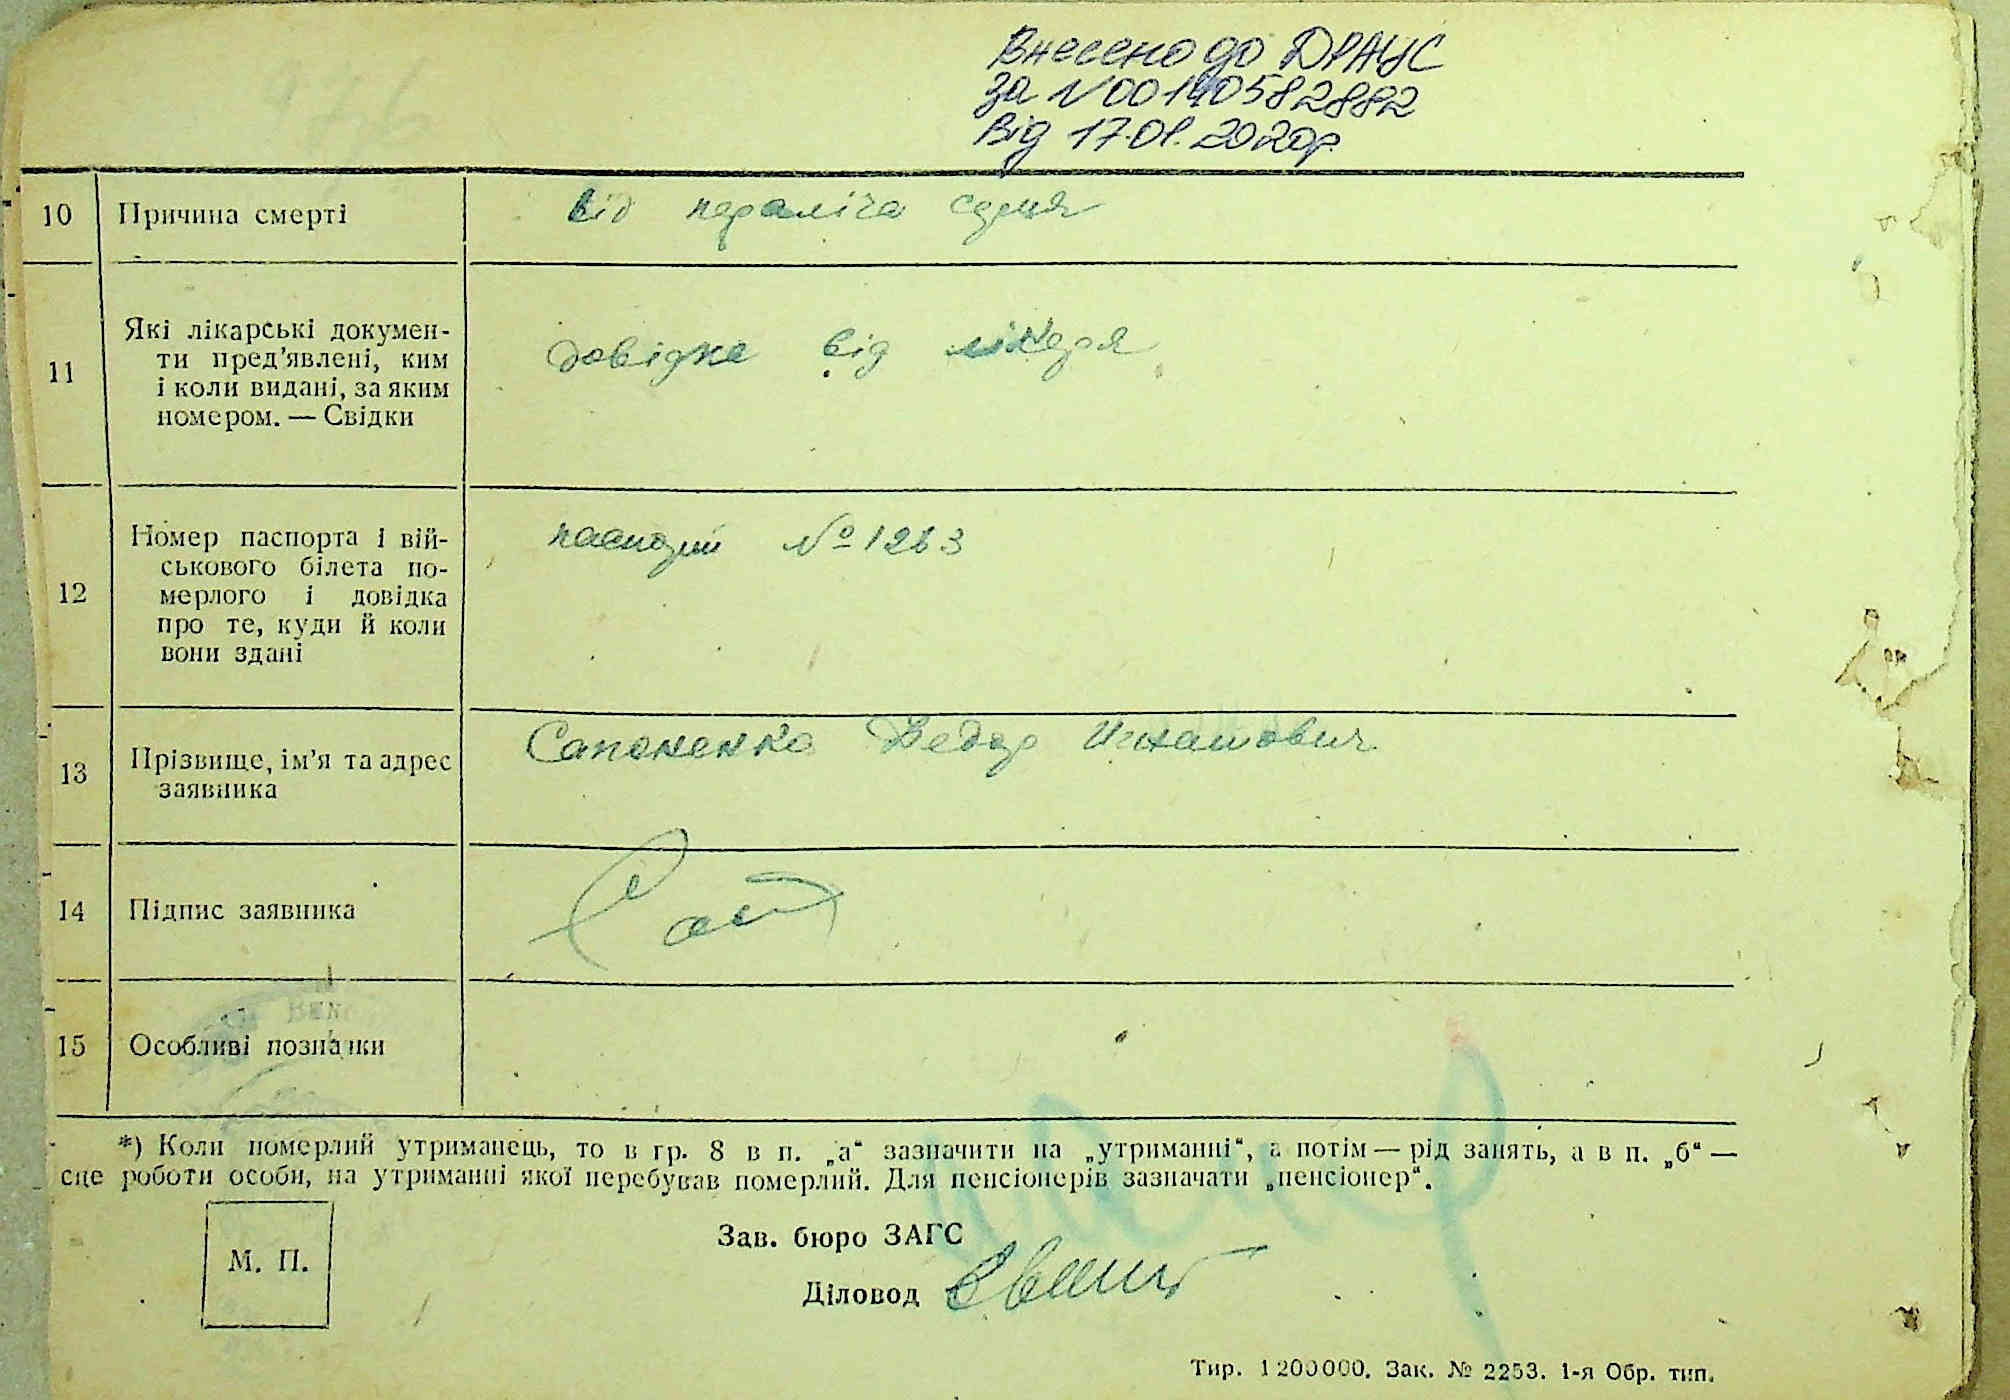 Внесено до ДРАЦС
за №00140582882
від 17.01.2020р
10 Причина смерті від параліча серця
11 Які лікарські докумен-
ти пред'явлені, ким
і коли видані, за яким
номером. — Свідки
довідка від лікаря
12 Номер паспорта і вій-
ськового білета по-
мерлого і довідка
про те, куди й коли
вони здані
паспорт № 1263
13 Прізвище, ім'я та адрес
заявника
Сапоненко Федор Игнатович
14 Підпис заявника
15 Особливі познаки
*) Коли померлий утриманець, то в гр. 8 в п. „а“ зазначити на „утриманні“, а потім — рід занять, а в п. „б“ —
сце роботи особи, на утриманні якої перебував померлий. Для пенсіонерів зазначати „пенсіонер“.
М. П.
Зав. бюро ЗАГС
Діловод
Тир. 1200000. Зак. № 2253. 1-я Обр. тип.